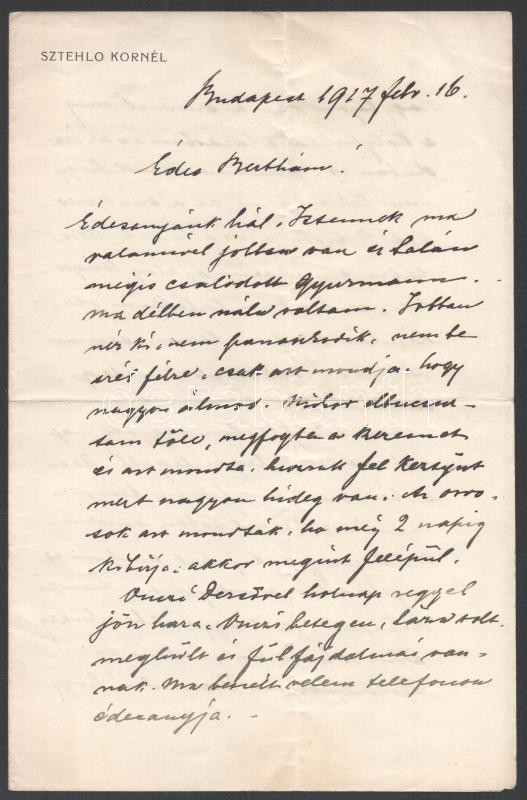 SZTEHLO KORNÉL
Budapest 1917 febr. 16.
Édes Berthám!
Édesanyánk hál. Istennek ma
valamivel jobban van és talán
mégis csalódott Gyurmann.
ma délben nála voltam. Jobban
néz ki, nem panaszkodik, nem be-
szél félre, csak azt mondja, hogy
nagyon álmos. Mikor elbucsuz-
tam tőle, megfogta a kezemet
és azt mondta, huzzak fel kesztyüt
mert nagyon hideg van. Az orvo-
sok azt mondták, ha még 2 napig
kibirja, akkor megint felépül.
Dezsővel holnap reggel
jön haza. betegen, láza volt
meghült és fülfájdalmai van-
nak. Ma beszélt velem telefonon
édesanyja. -